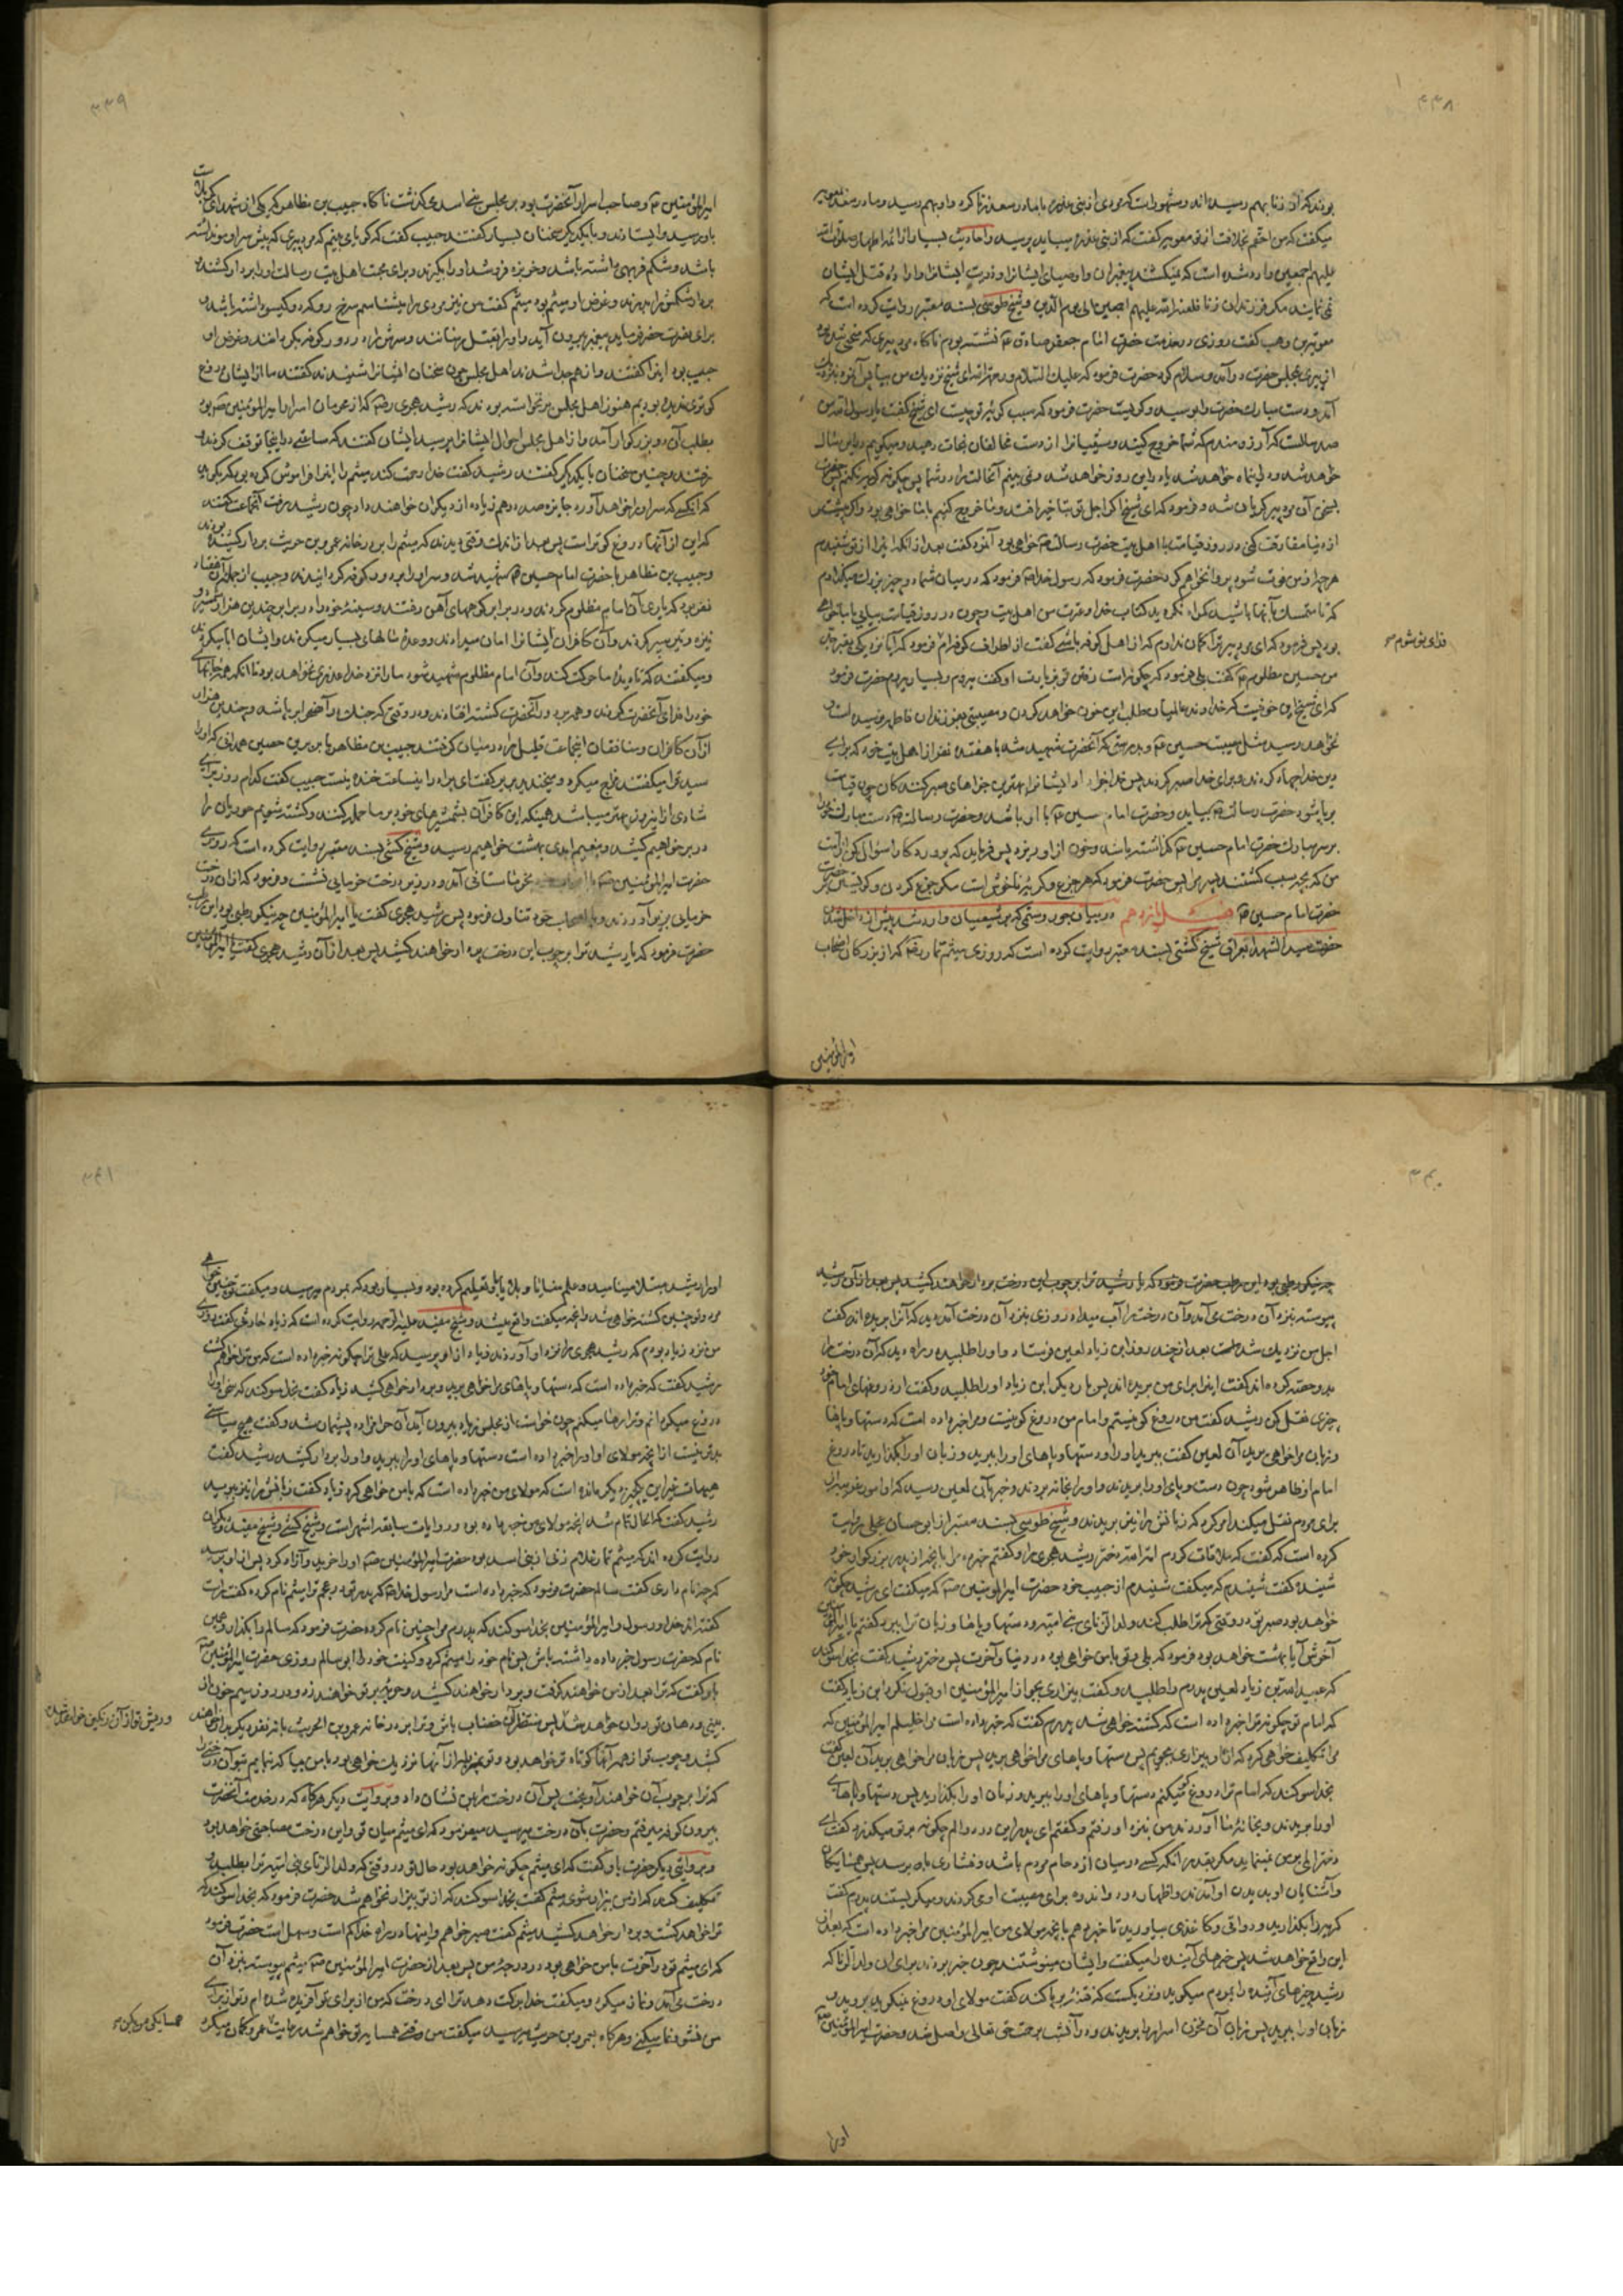 ۳۳۸
بودند که از زنا بهم رسیده اند و مشهور است که مردی از بنی عذره با مادر سعد زنا کرد و او بهم رسید و مادر سعد بمعویه
میگفت که من احقم بخلافت از تو معویه گفت که از بنی عذره میباید پرسید و احادیث بسیار از ائمه اطهار صلوات الله
علیهم اجمعین وارد شده است که نمیکشد پیغمبران و اوصیای ایشانرا و ذریت ایشانرا و اراده قتل ایشان
نمی نمایند مکر فرزندان زنا فلعنة الله علیهم اجمعین الی یوم الدین و شیخ طوسی بسند معتبر روایت کرده است که
معویة بن وهب گفت روزی در خدمت حضرت امام جعفر صادق ع نشسته بودم ناکاه مرد پیری که منحنی شده بود
از پیری بمجلس حضرت درآمد و سلام کرد حضرت فرمود که علیک السلام و رحمة الله ای شیخ نزدیک من بیا پس آنمرد بنزدیک
آمد و دست مبارک حضرت را بوسید و کریست حضرت فرمود که سبب کریه تو چیست ای شیخ گفت یابن رسول الله من
صد سالست که آرزومندم که شما خروج کنید و شیعیانرا از دست مخالفان نجات دهید و میکویم در این سال
خواهد شد و در اینماه خواهد شد یا در این روز خواهد شد و نمی بینم آنحالت را در شما پس چکونه کریه نکنم پس حضرت
بسخن آن مرد پیر کریان شد و فرمود که ای شیخ اکر اجل تو بتاخیر افتد و ما خروج کنیم با ما خواهی بود و اکر پیشتر
از دنیا مفارقت کنی در روز قیامت با اهل بیت حضرت رسالت ص خواهی بود آنمرد گفت بعد از انکه اینرا از تو شنیدم
هرچه از من فوت شود پروا نخواهم کرد حضرت فرمود که رسول خدا ص فرمود که در میان شما دو چیز بزرک میکذارم
که تا متمسک بآنها باشید کمراه نکردید کتاب خدا و عترت من اهل بیت و چون در روز قیامت بیایی با ما خواهی
بود پس فرمود که ای مرد پیر ترا کمان ندارم که از اهل کوفه باشی گفت از اطراف کوفه ام فرمود که آیا نزدیکی بقبر جد
فدای تو شوم صح
من حسین مظلوم ع گفت بلی فرمود که چکونه است رفتن تو بزیارت او گفت میروم و بسیار میروم حضرت فرمود
که ای شیخ این خونیست که خداوند عالمیان طلب این خون خواهد کردن و مصیبتی بفرزندان فاطمه نرسیده است و
نخواهد رسید مثل مصیبت حسین ع بدرستی که آنحضرت شهید شد با هفده نفر از اهل بیت خود که برای
دین خدا جهاد کردند و برای خدا صبر کردند پس خدا جزا داد ایشانرا بهترین جزاهای صبر کنندکان چون قیامت
برپا شود حضرت رسالت ص بیاید و حضرت امام حسین ع با او باشد و حضرت رسالت ص دست مبارک خود را
بر سر مبارک حضرت امام حسین ع کذاشته باشد و خون از او ریزد پس فرماید که پروردکارا سؤال کن از امت
من که بچه سبب کشتند پسر مرا پس حضرت فرمود که هر جزع و کریه ناخوش است مکر جزع کردن و کریستن بر
حضرت امام حسین ع فصل پانزدهم در بیان جور و ستمی که بر شیعیان وارد شد پیش از داخل شدن
حضرت سید الشهدا بعراق شیخ کشی بسند معتبر روایت کرده است که روزی میثم تمار رض که از بزرکان اصحاب
امیرالمؤمنین
۳۳۹
امیرالمؤمنین ع و صاحب اسرار آنحضرت بود بر مجلس بنی اسد می کذشت ناکاه حبیب بن مظاهر که یکی از شهدای کربلاست
باو رسید و ایستادند و با یکدیکر سخنان بسیار گفتند حبیب گفت که کویا می بینم که مرد پیری که پیش سر او مو نداشته
باشد و شکم فربهی داشته باشد و خربزه فروشد او را بکیرند و برای محبت اهل بیت رسالت او را بردار کشند و
بر دار شکمش را بدرند و غرض او میثم بود میثم گفت من نیز مردی را میشناسم سرخ رو که دو کیسو داشته باشد و
برای نصرت فرزند پیغمبر بیرون آید و او را بقتل رسانند و سرش را در دور کوفه بکردانند و غرض او
حبیب بود اینرا گفتند و از هم جدا شدند اهل مجلس چون سخنان ایشانرا شنیدند گفتند ما از ایشان دروغ
کوتری ندیده بودیم هنوز اهل مجلس برنخواسته بودند که رشید هجری رض که از محرمان اسرار امیرالمؤمنین ع بود
بطلب آن دو بزرکوار آمد و از اهل مجلس احوال ایشانرا پرسید ایشان گفتند که ساعتی در اینجا توقف کردند و
رفتند و چنین سخنان با یکدیکر گفتند رشید گفت خدا رحمت کند میثم را اینرا فراموش کرد بود که بکوید
که آنکسی که سر او را خواهد آورد جایزه صد درهم زیاده از دیکران خواهند داد چون رشید برفت آنجماعت گفتند
که این از آنها دروغ کوتر است پس بعد از اندک وقتی دیدند که میثم را بر در خانه عمرو بن حریث بردار کشیده بودند
و حبیب بن مظاهر با حضرت امام حسین ع شهید شد و سر او را بر دور کوفه کردانیدند و حبیب از جمله آن هفتاد
نفر بود که یاری آن امام مظلوم کردند و در برابر کوههای آهن رفتند و سینه خود را در برابر چندین هزار شمشیر و
نیزه و تیر سپر کردند و آن کافران ایشانرا امان میدادند و وعده مالهای بسیار میکردند و ایشان ابا میکردند
و میکفتند که تا دیده ما حرکت کند و آن امام مظلوم شهید شود ما را نزد خدا عذری نخواهد بود تا انکه همه جانهای
خود را فدای آنحضرت کردند و همه بر دور آنحضرت کشته افتادند و در وقتی که جنک در آنصحرا برپا شد و چندین هزار
از آن کافران و منافقان آنجماعت قلیل را در میان کرفتند حبیب بن مظاهر با بریر بن حصین همدانی که او را
سید قرا میکفتند مزاح میکرد و میخندید بریر گفت ای برادر این ساعت خنده نیست حبیب گفت کدام روز برای
شادی از این روز بهتر میباشد همینکه این کافران بشمشیرهای خود بر ما حمله کنند و کشته شویم حوریان را
در بر خواهیم کشید و بنعیم ابدی بهشت خواهیم رسید و شیخ کشی بسند معتبر روایت کرده است که روزی
حضرت امیرالمؤمنین ص با اصحاب خود بخرماستانی آمد و در زیر درخت خرمایی نشست و فرمود که از آن درخت
خرمایی بزیر آوردند و با اصحاب خود تناول فرمود پس رشید هجری گفت یا امیرالمؤمنین چه نیکو رطبی بود این رطب
حضرت فرمود که یا رشید ترا بر چوب این درخت بردار خواهند کشید پس بعد از آن رشید هجری گفت یا امیرالمؤمنین
۳۴۰
چه نیکو رطبی بود این رطب حضرت فرمود که یا رشید ترا بر چوب این درخت بردار خواهند کشید پس بعد از آن رشید
پیوسته بنزد آن درخت می آمد و آن درخت را آب میداد روزی بنزد آن درخت آمد دید که آنرا بریده اند گفت
اجل من نزدیک شد پس بعد از چند روز ابن زیاد لعین فرستاد و او را طلبید در راه دید که آن درخت را
بدو حصه کرده اند گفت اینرا برای من بریده اند پس بار دیکر ابن زیاد او را طلبید و گفت از دروغهای امام خود
چیزی نقل کن رشید گفت من دروغ کو نیستم و امام من دروغ کو نیست و مرا خبر داده است که دستها و پاها
و زبان مرا خواهی برید آن لعین گفت ببرید او را و دستها و پاهای او را ببرید و زبان او را بکذارید تا دروغ
امام او ظاهر شود چون دست و پای او را بریدند و او را بخانه بردند و خبر بآن لعین رسید که او امور غریبه را
برای مردم نقل میکند امر کرد که زبانش را نیز بریدند و شیخ طوسی بسند معتبر از ابی حسان عجلی روایت
کرده است که گفت که ملاقات کردم امة الله دختر رشید هجری را و گفتم خبر ده مرا بانچه از پدر بزرکوار خود
شنیدهٔ گفت شنیدم که میکفت شنیدم از حبیب خود حضرت امیرالمؤمنین ص که میکفت ای رشید چکونه
خواهد بود صبر تو در وقتی که ترا طلب کند ولد الزنای بنی امیه و دستها و پاها و زبان ترا ببرد گفتم یا امیرالمؤمنین
آخرش آیا بهشت خواهد بود فرمود که بلی و تو با من خواهی بود در دنیا و آخرت پس دختر رشید گفت بخدا سوکند
که عبیدالله بن زیاد لعین پدرم را طلبید و گفت بیزاری بجو از امیرالمؤمنین او قبول نکرد ابن زیاد گفت
که امام تو چکونه ترا خبر داده است که کشته خواهی شد پدرم گفت که خبر داده است مرا خلیلم امیرالمؤمنین که
مرا تکلیف خواهی کرد که از او بیزاری بجویم پس دستها و پاهای مرا خواهی برید پس زبان مرا خواهی برید آن لعین گفت
بخدا سوکند که امام ترا دروغ کو میکنم دستها و پاهای او را ببرید و زبان او را بکذارید پس دستها و پاهای
او را بریدند و بخانهٔ ما آوردند من بنزد او رفتم و گفتم ای پدر این درد و الم چکونه بر تو میکذرد گفت ای
دختر المی بر من نمینماید مکر بقدر انکه کسی در میان ازدحام مردم باشد و فشاری باو برسد پس همسایکان
و آشنایان او بدیدن او آمدند و اظهار درد و اندوه برای مصیبت او می کردند و میکریستند پدرم گفت
کریه را بکذارید و دواتی و کاغذی بیاورید تا خبر دهم بانچه مولای من امیرالمؤمنین مرا خبر داده است که بعد از
این واقع خواهد شد پس خبرهای آینده را میکفت و ایشان مینوشتند چون خبر بردند برای ان ولد الزنا که
رشید خبرهای آینده را بمردم میکوید و نزدیکست که فتنه برپا کند گفت مولای او دروغ نمیکوید بروید و
زبان او را ببرید پس زبان آن مخزن اسرار را بریدند و در آنشب برحمت حق تعالی واصل شد و حضرت امیرالمؤمنین ص
او را
۳۴۱
او را رشید مبتلا مینامید و علم منایا و بلایا باو تعلیم کرده بود و بسیار بود که بمردم میرسید و میکفت تو چنین خواهی
مرد و تو چنین کشته خواهی شد و آنچه میکفت واقع میشد و شیخ مفید علیه الرحمه روایت کرده است که زیاد حارثی گفت روزی
من نزد زیاد بودم که رشید هجری را نزد او آوردند زیاد از او پرسید که علی ترا چکونه خبر داده است که من ترا خواهم کشت
رشید گفت که خبر داده است که دستها و پاهای مرا خواهی برید و بردار خواهی کشید زیاد گفت بخدا سوکند که سخن او را
دروغ میکردانم و ترا رها میکنم چون خواست از مجلس زیاد بیرون آید آن حرامزاده پشیمان شد و گفت هیچ سیاستی
بدتر نیست از انچه مولای او او را خبر داده است دستها و پاهای او را ببرید و او را بردار کشید رشید گفت
هیهات غیر این یکچیز دیکر مانده است که مولای من خبر داده است که با من خواهی کرد زیاد گفت زبانش را نیز ببرید
رشید گفت که الحال تمام شد انچه مولای من خبر داده بود و روایات سابقه اشهر است و شیخ کشی و شیخ مفید و دیکران
روایت کرده اند که میثم تمار غلام زنی از بنی اسد بود حضرت امیرالمؤمنین ص او را خرید و آزاد کرد پس از او پرسید
که چه نام داری گفت سالم حضرت فرمود که خبر داده است مرا رسول خدا ص که پدر تو در عجم ترا میثم نام کرده گفت راست
گفته اند خدا و رسول و امیرالمؤمنین بخدا سوکند که پدرم مرا چنین نام کرده حضرت فرمود که سالم را بکذار و همین
نام که حضرت رسول خبر داده داشته باش پس نام خود را میثم کرد و کنیت خود را ابی سالم روزی حضرت امیرالمؤمنین ص
باو گفت که ترا بعد از من خواهند کرفت و بر دار خواهند کشید و حربه بر تو خواهند زد و در روز سیم خون از
بینی و دهان تو روان خواهد شد پس منتظر آن خضاب باش و ترا بر در خانه عمرو بن الحریث با نه نفر دیکر بدار خواهند
و ریش تو از آن رنکین خواهد شد
کشید و چوب تو از همه آنها کوتاه تر خواهد بود و تو بمتوضا از آنها نزدیکتر خواهی بود با من بیا که بنمایم بتو آن درختی را
که ترا بر چوب آن خواهند آویخت پس آن درخت را بمن نشان داد و بروایت دیکر هرکاه که در خدمت آنحضرت
بیرون کوفه میرفتم و حضرت بآن درخت میرسید میفرمود که ای میثم میان تو و این درخت مصاحبتی خواهد بود
و بروایتی دیکر حضرت باو گفت که ای میثم چکونه خواهد بود حال تو در وقتی که ولد الزنای بنی امیه ترا بطلبد و
تکلیف کند که از من بیزار شوی میثم گفت بخدا سوکند که از تو بیزار نخواهم شد حضرت فرمود که بخدا سوکند که
ترا خواهد کشت و بردار خواهد کشید میثم گفت صبر خواهم و اینها در راه خدا کم است و سهل است حضرت فرمود
که ای میثم تو در آخرت با من خواهی بود در درجهٔ من پس بعد از حضرت امیرالمؤمنین ص میثم پیوسته بنزد آن
درخت می آمد و نماز میکرد و میکفت خدا برکت دهد ترا ای درخت که من از برای تو آفریده شده ام و تو از برای
من نشو و نما میکنی و هرکاه بعمرو بن حریث میرسید میکفت من وقتی همسایه تو خواهم شد رعایت عمرو کمان میکرد
همسایکی من بکن صح